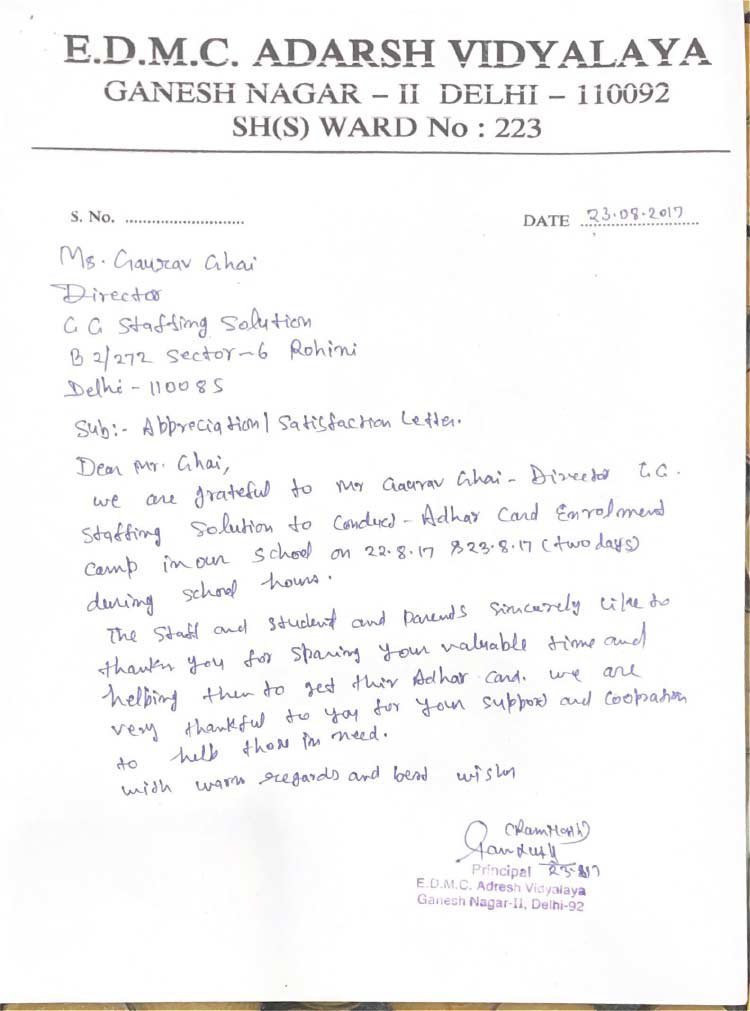 E.D.M.C. ADARSH VIDYALAYA
GANESH NAGAR – II DELHI – 110092
SH(S) WARD No : 223
S. No. ...........................
DATE 23.08.2017
Mr. Gaurav Ghai
Director
G G Staffing Solution
B 2/272 Sector-6 Rohini
Delhi - 110085
Sub:- Appreciation/ Satisfaction Letter.
Dear Mr. Ghai,
we are grateful to Mr Gaurav Ghai - Director G.G.
Staffing Solution to Conduct - Adhar Card Enrolment
camp in our school on 22.8.17 & 23.8.17 (two days)
during school hours.
The Staff and Student and parents sincerely like to
thank you for sparing your valuable time and
helping them to get this Adhar card. we are
very thankful to you for your support and Cooperation
to help those in need.
with warm regards and best wishes
Principal 23-8-17
E.D.M.C. Adresh Vidyalaya
Ganesh Nagar-II, Delhi-92